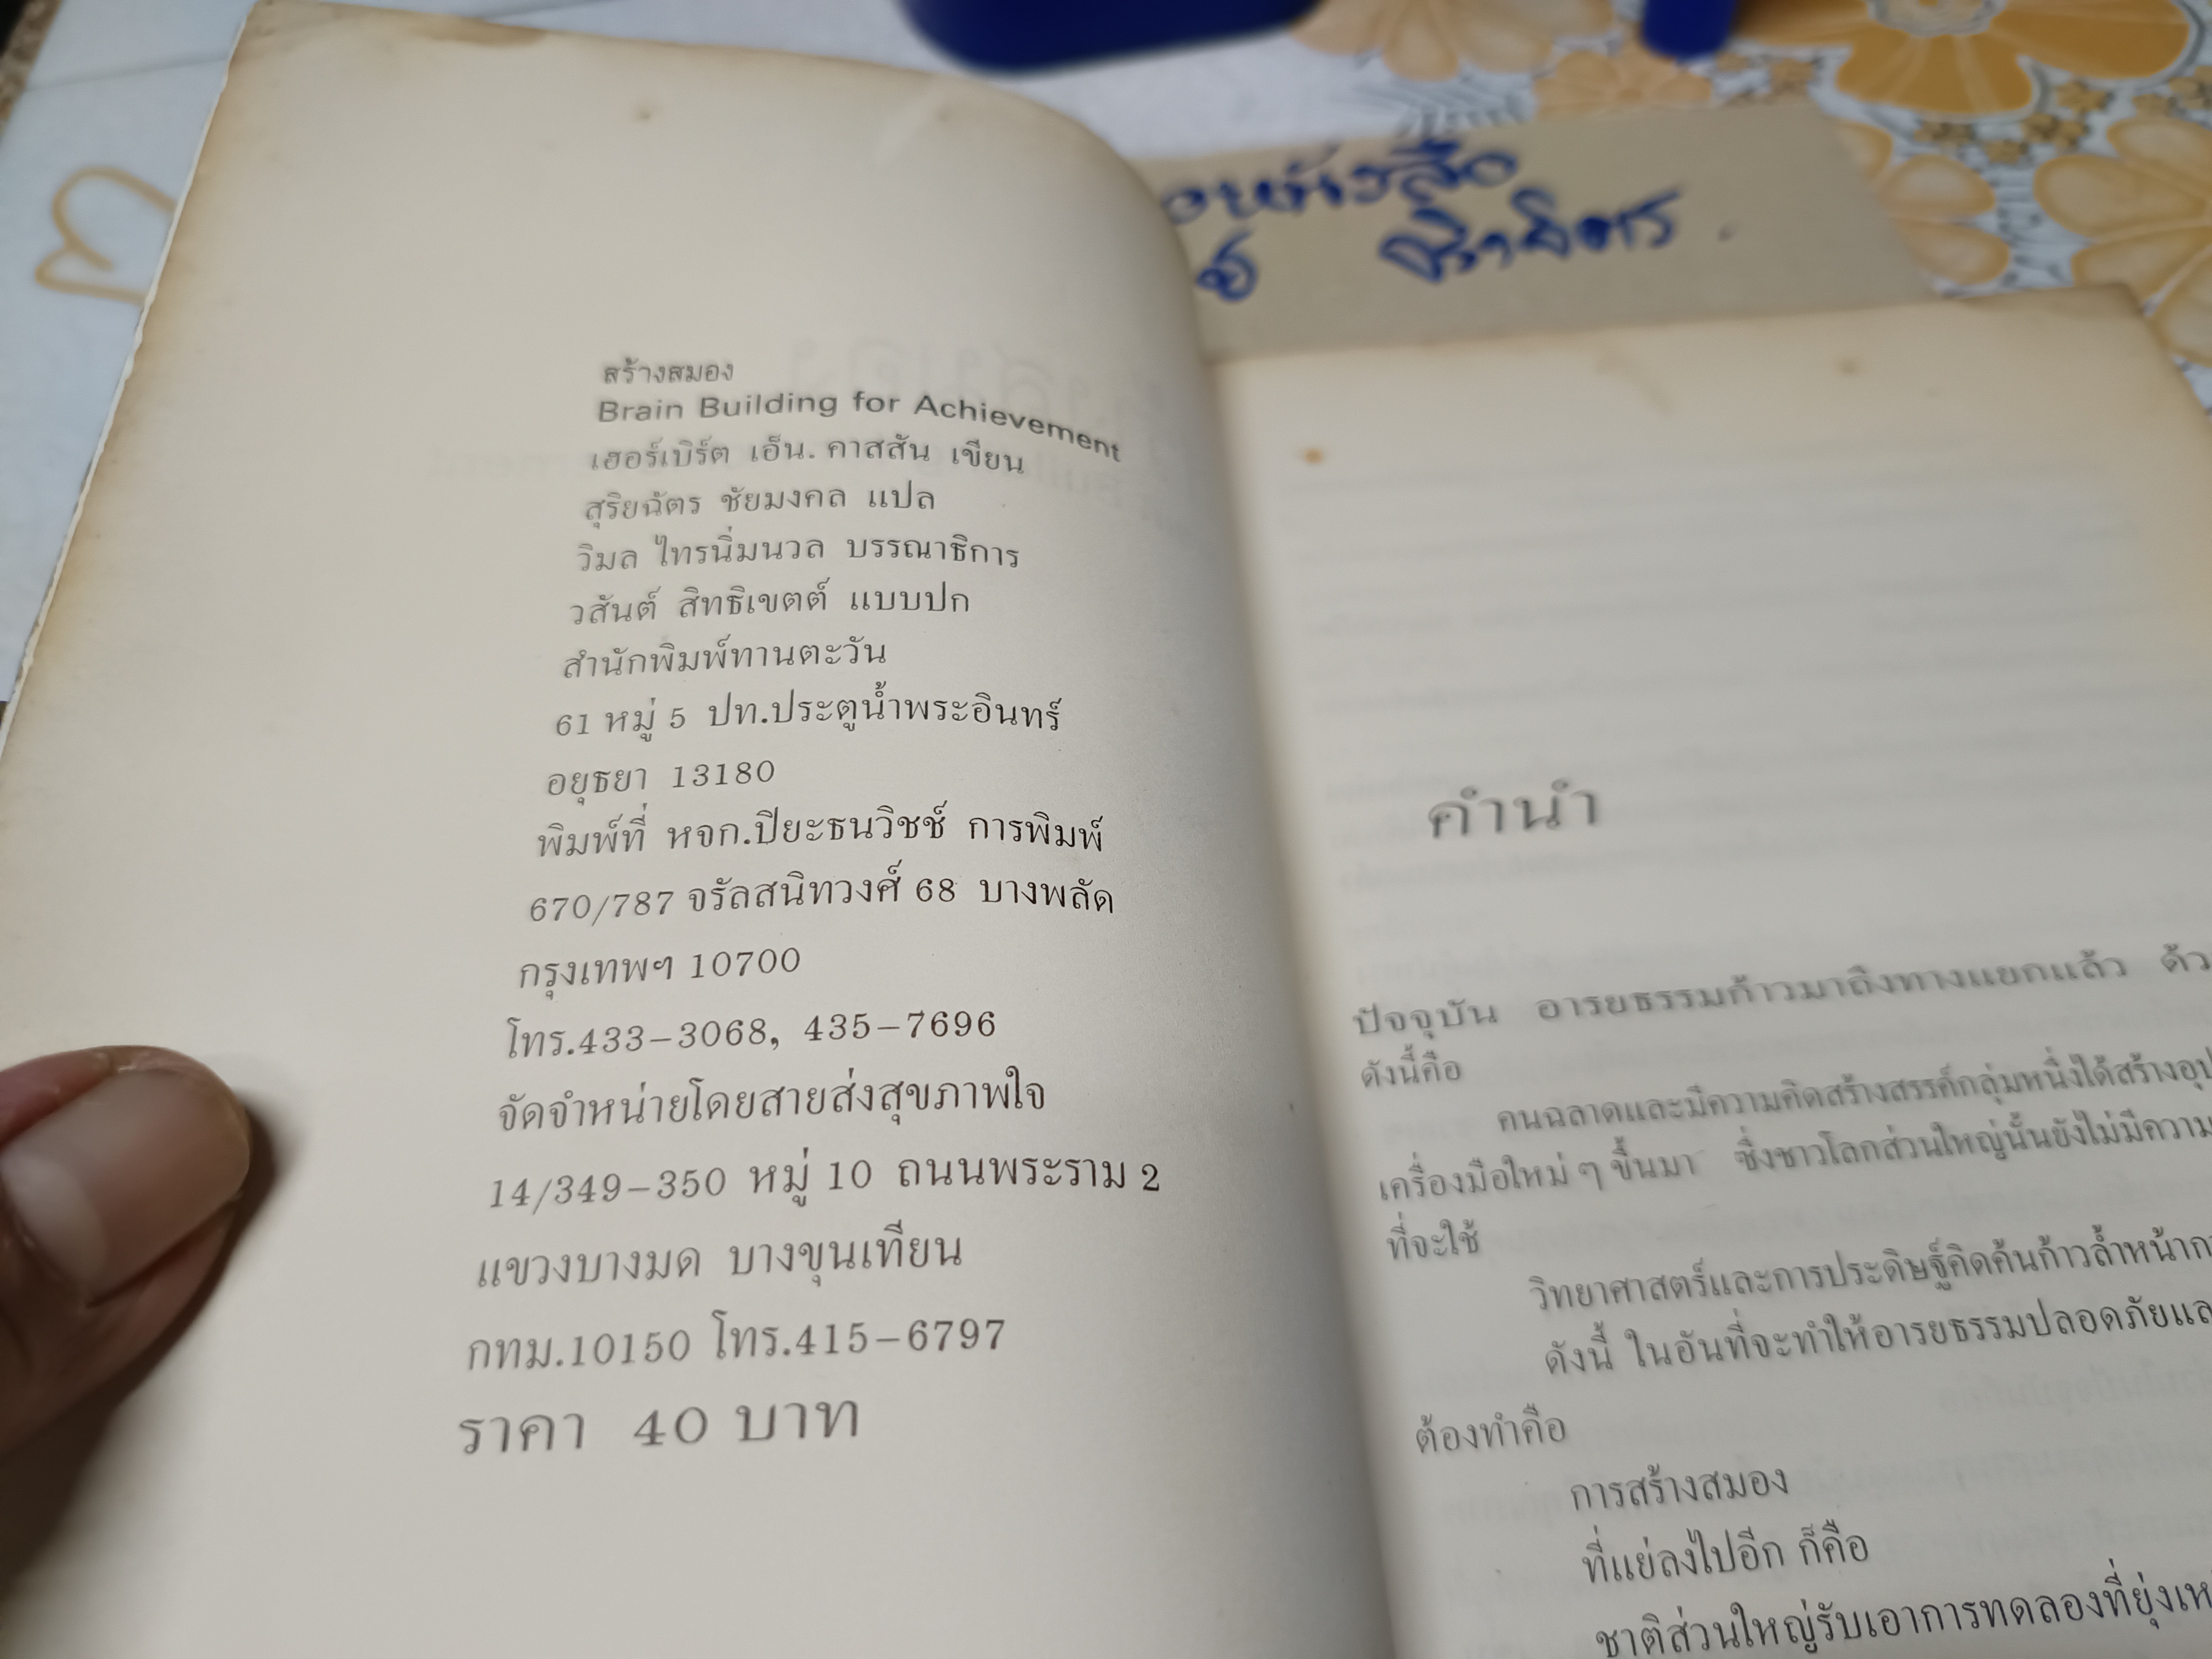 สร้างสมอง
Brain Building for Achievement
เฮอร์เบิร์ต เอ็น. คาสสัน เขียน
สุริยฉัตร ชัยมงคล แปล
วิมล ไทรนิ่มนวล บรรณาธิการ
วสันต์ สิทธิเขตต์ แบบปก
สำนักพิมพ์ทานตะวัน
61 หมู่ 5 ปท.ประตูน้ำพระอินทร์
อยุธยา 13180
พิมพ์ที่ หจก.ปิยะธนวิชช์ การพิมพ์
670/787 จรัลสนิทวงศ์ 68 บางพลัด
กรุงเทพฯ 10700
โทร.433-3068, 435-7696
จัดจำหน่ายโดยสายส่งสุขภาพใจ
14/349-350 หมู่ 10 ถนนพระราม 2
แขวงบางมด บางขุนเทียน
กทม.10150 โทร.415-6797
ราคา 40 บาท
คำนำ
ปัจจุบัน อารยธรรมก้าวมาถึงทางแยกแล้ว ด้ว
ดังนี้คือ
คนฉลาดและมีความคิดสร้างสรรค์กลุ่มหนึ่งได้สร้างอุป
เครื่องมือใหม่ ๆ ขึ้นมา ซึ่งชาวโลกส่วนใหญ่นั้นยังไม่มีความ
ที่จะใช้
วิทยาศาสตร์และการประดิษฐ์คิดค้นก้าวล้ำหน้ากา
ดังนี้ ในอันที่จะทำให้อารยธรรมปลอดภัยแล
ต้องทำคือ
การสร้างสมอง
ที่แย่ลงไปอีก ก็คือ
ชาติส่วนใหญ่รับเอาการทดลองที่ยุ่งเห